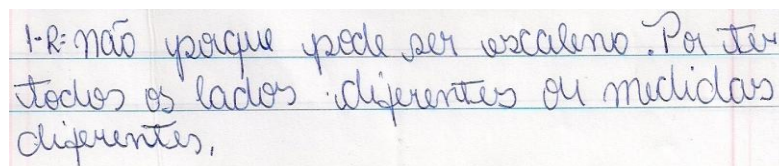 1-R: não porque pode ser escaleno. Por ter
todos os lados diferentes ou medidas
diferentes.